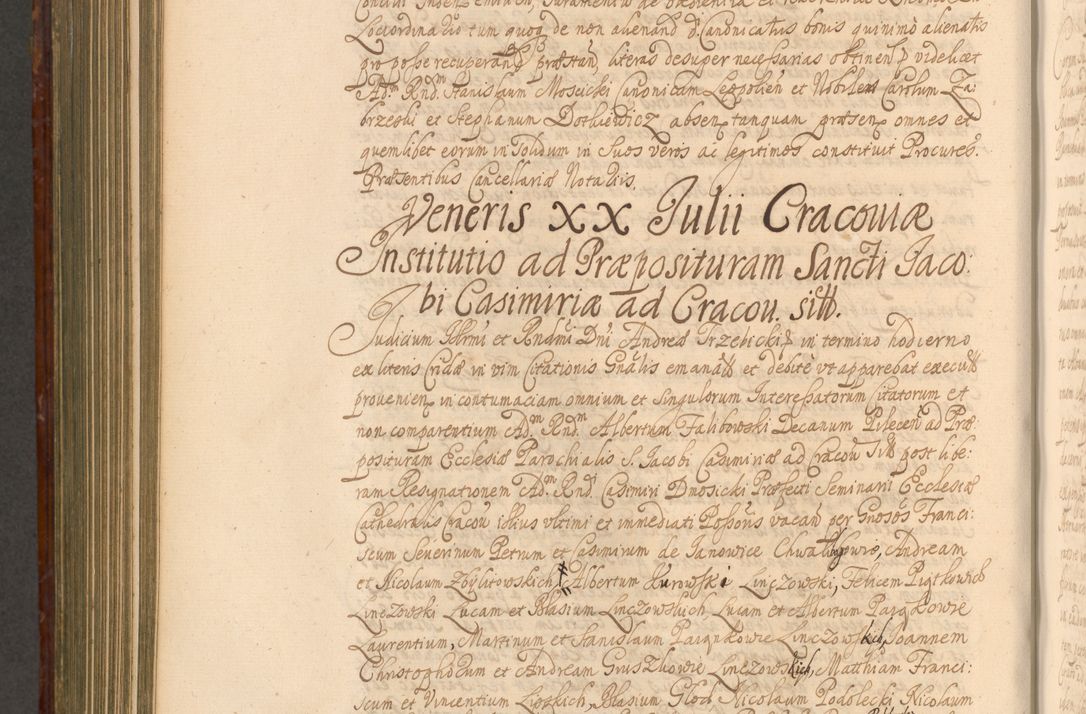 Lociordinario tum quoq de non alienand d. Canonicatus bonis quinimo alienatis
pro posse recuperan præstan, literas desuper necessarias obtinen videlicet
Ad.m Rnd. Stanislaum Moscicki Canonicam Leopolien et Nobiles Carolum Za:
brzeski et Stephanum Dotkiewicz absen tanquam præsen omnes et
quemlibet eorum in Solidum in suos veros ac legitimos constituit Procures.
Præsentibus Cancellariæ Notariis.
Veneris XX Julii Cracoviæ
Institutio ad Præposituram Sancti Jaco:
bi Casimiriæ ad Cracou. sitt.
Judicium Illrmi et Rndmi Dni Andreæ Trzebicki in termino hodierno
ex literis Cridæ in vim Citationis Gnalis emanatt et debite vt apparebat executt
provenien in contumaciam omnium et singulorum Interessatorum Citatorum et
non comparentium Ad.m Rnd.m Albertum Falibowski Decanum Pilecen ad Præ:
posituram Ecclesiæ Parochialis S. Jacobi Casimiriæ ad Cracou Sitt post libe:
ram Resignationem Ad.m Rnd. Casimiri Dmosicki Præfecti Seminarii Ecclesiæ
Cathedralis Cracou illius vltimi et immediati Possoris vacan per Gnosos Franci:
scum Severinum Petrum et Casimirum de Janowice Chwalibgowie, Andream
et Nicolaum Zbylitowskich Albertum Kurowski Linczowski, Felicem Piątkowich
Linczowski Lucam et Blasium Linczowskich Lucam et Albertum Paiąkowie
Laurentium, Martinum et Stanislaum Paiąnkowie Linczowskich, Joannem
Christophorum et Andream Gruszkowie Linczowskich, Matthiam Franci:
scum et Vincentium Lipskich, Blasium Głoch Nicolaum Podolecki Nicolaum